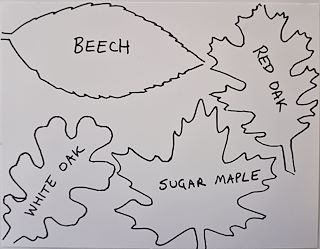 BEECH
RED OAK
WHITE OAK
SUGAR MAPLE